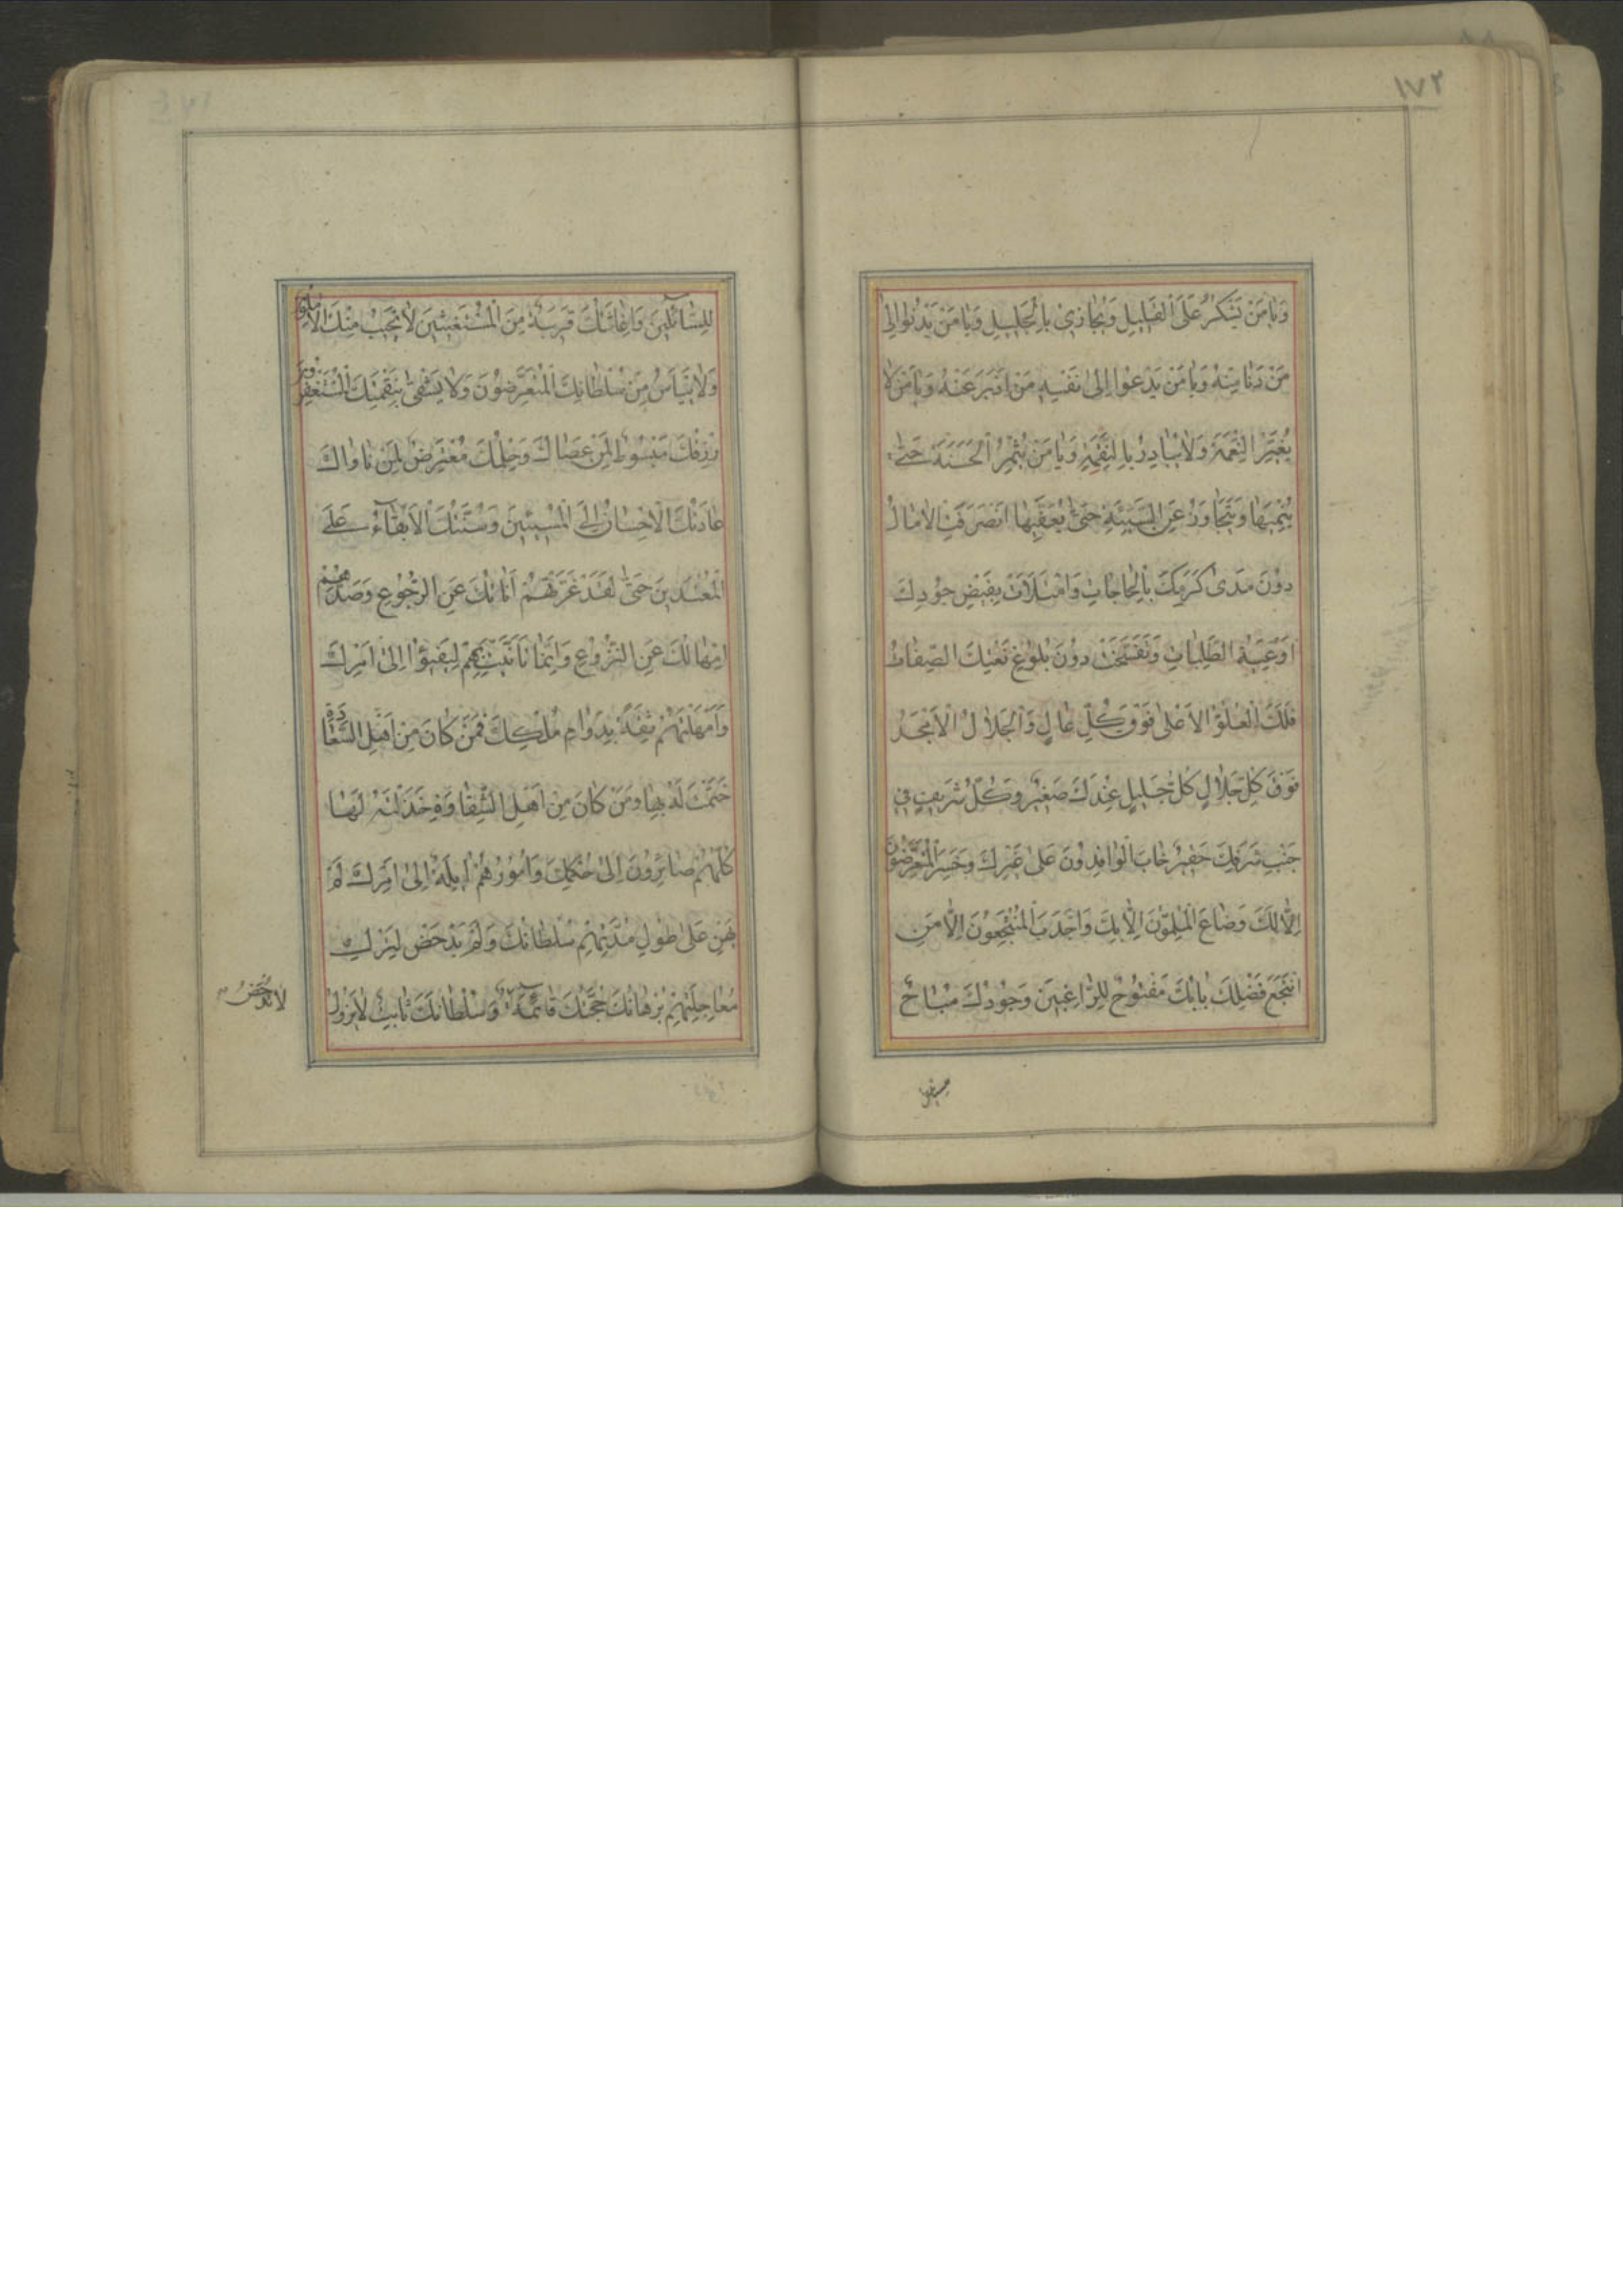 ١٧٢
وَيَا مَنْ يَشْكُرُ عَلَى الْقَلِيلِ وَيُجَازِي بِالْجَلِيلِ وَيَا مَنْ يَدْنُوا اِلىٰ
مَنْ دَنَا مِنْهُ وَيَا مَنْ يَدْعُوا اِلىٰ نَفْسِهِ مَنْ اَدْبَرَ عَنْهُ وَيَا مَنْ لَا
يُغَيِّرُ النِّعْمَةَ وَلَا يُبَادِرُ بِالنَّقِمَةِ وَيَا مَنْ يُثْمِرُ الْحَسَنَةَ حَتّٰى
يُنْمِيَهَا وَيَتَجَاوَزُ عَنِ السَّيِّئَةِ حَتّٰى يُعَفِّيَهَا انْصَرَفَتِ الْاٰمَالُ
دُونَ مَدىٰ كَرَمِكَ بِالْحَاجَاتِ وَامْتَلَاَتْ بِفَيْضِ جُودِكَ
اَوْعِيَةُ الطَّلِبَاتِ وَتَفَسَّخَتْ دُونَ بُلُوغِ نَعْتِكَ الصِّفَاتُ
فَلَكَ الْعُلُوُّ الْاَعْلىٰ فَوْقَ كُلِّ عَالٍ وَالْجَلَالُ الْاَمْجَدُ
فَوْقَ كُلِّ جَلَالٍ كُلُّ جَلِيلٍ عِنْدَكَ صَغِيرٌ وَكُلُّ شَرِيفٍ فِي
جَنْبِ شَرَفِكَ حَقِيرٌ خَابَ الْوَافِدُونَ عَلىٰ غَيْرِكَ وَخَسِرَ الْمُتَعَرِّضُونَ
اِلَّا لَكَ وَضَاعَ الْمُلِمُّونَ اِلَّا بِكَ وَاَجْدَبَ الْمُنْتَجِعُونَ اِلَّا مَنِ
انْتَجَعَ فَضْلَكَ بَابُكَ مَفْتُوحٌ لِلرَّاغِبِينَ وَجُودُكَ مُبَاحٌ
لِلسَّائِلِينَ وَاِغَاثَتُكَ قَرِيبَةٌ مِنَ الْمُسْتَغِيثِينَ لَا يَخِيبُ مِنْكَ الْاٰمِلُونَ
وَلَا يَيْاَسُ مِنْ سُلْطَانِكَ الْمُتَعَرِّضُونَ وَلَا يَشْقىٰ بِنَقِمَتِكَ الْمُسْتَغْفِرُونَ
رِزْقُكَ مَبْسُوطٌ لِمَنْ عَصَاكَ وَحِلْمُكَ مُعْتَرِضٌ لِمَنْ نَاوَاكَ
عَادَتُكَ الْاِحْسَانُ اِلَى الْمُسِيئِينَ وَسُنَّتُكَ الْاِبْقَاءُ عَلَى
الْمُعْتَدِينَ حَتّٰى لَقَدْ غَرَّتْهُمْ اَنَاتُكَ عَنِ الرُّجُوعِ وَصَدَّهُمْ
اِمْهَالُكَ عَنِ النُّزُوعِ وَاِنَّمَا تَاَنَّيْتَ بِهِمْ لِيَفِيئُوا اِلىٰ اَمْرِكَ
وَاَمْهَلْتَهُمْ ثِقَةً بِدَوَامِ مُلْكِكَ فَمَنْ كَانَ مِنْ اَهْلِ السَّعَادَةِ
خَتَمْتَ لَهُ بِهَا وَمَنْ كَانَ مِنْ اَهْلِ الشَّقَاوَةِ خَذَلْتَهُ لَهَا
كُلُّهُمْ صَائِرُونَ اِلىٰ حُكْمِكَ وَاُمُورُهُمْ اٰيِلَةٌ اِلىٰ اَمْرِكَ لَمْ
يَهِنْ عَلىٰ طُولِ مُدَّتِهِمْ سُلْطَانُكَ وَلَمْ يَدْحَضْ لِتَرْكِ
مُعَاجَلَتِهِمْ بُرْهَانُكَ حُجَّتُكَ قَائِمَةٌ وَسُلْطَانُكَ ثَابِتٌ لَا يَزُولُ
لَا تُدْحَضُ